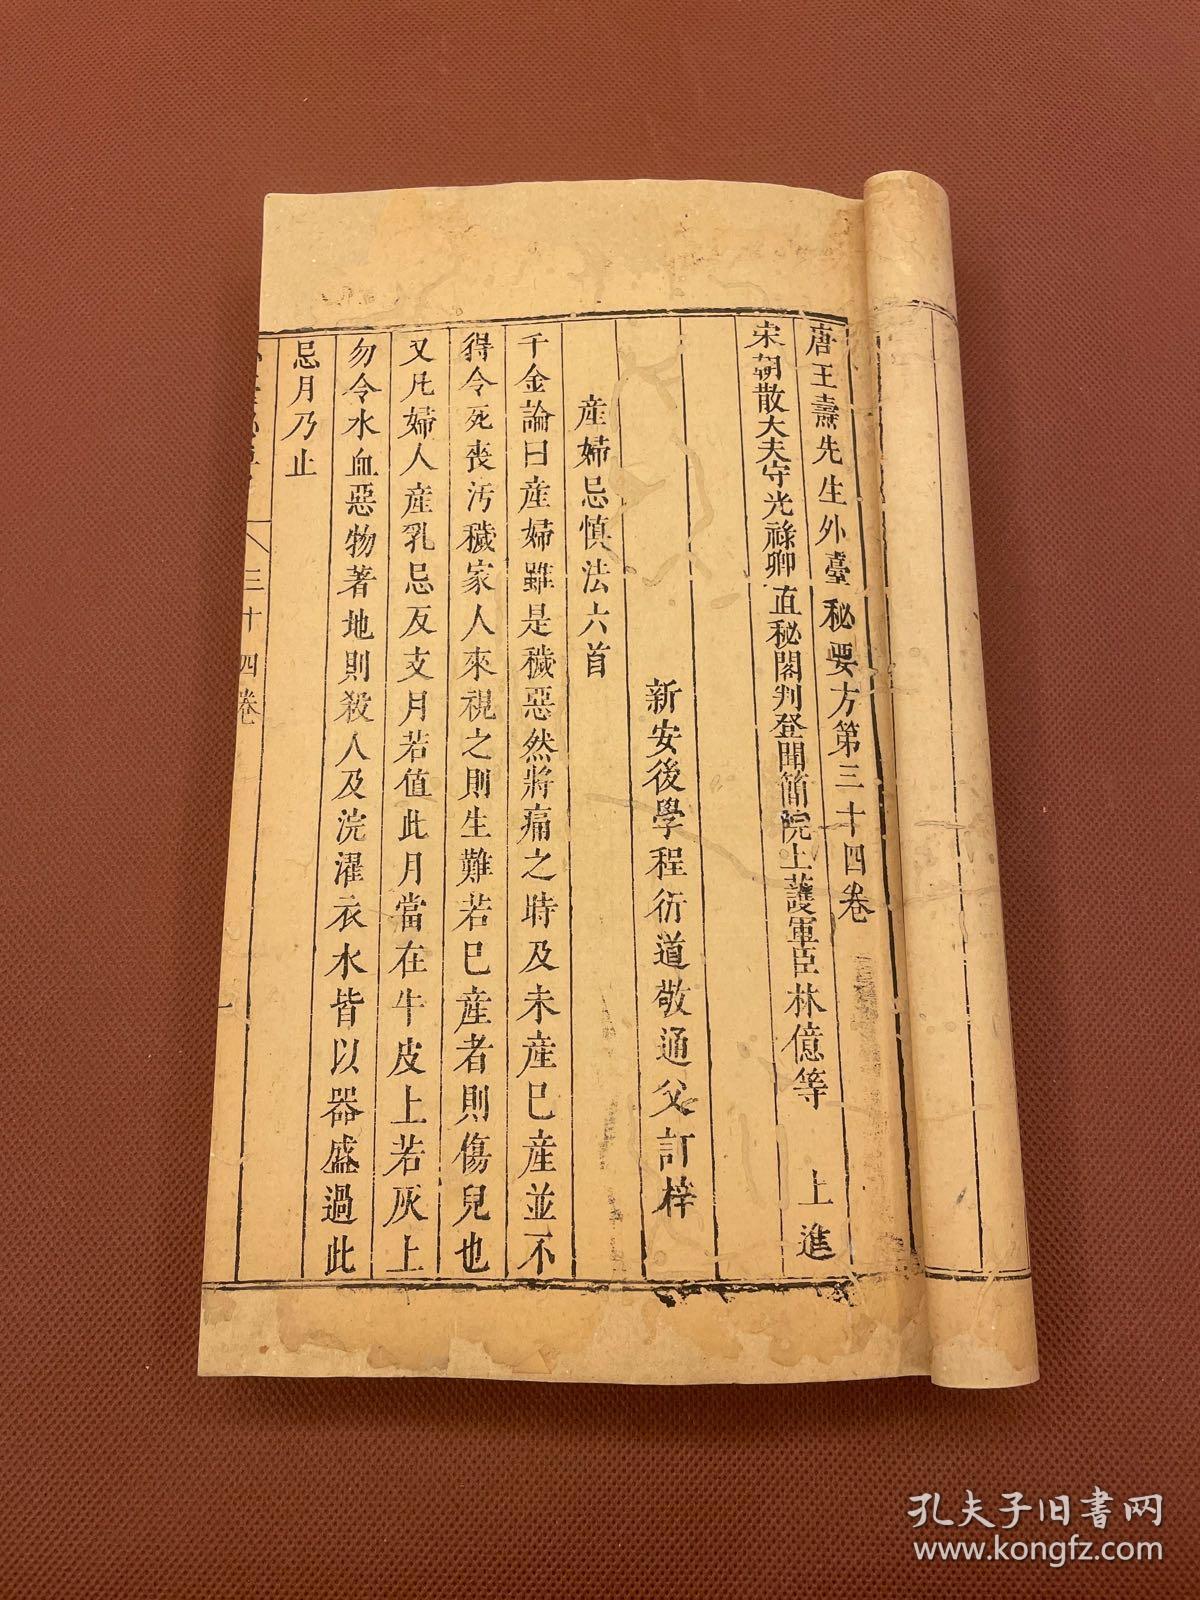 唐王燾先生外臺秘要方第三十四卷
宋朝散大夫守光祿卿直秘閣判登聞簡院上護軍臣林億等　上進
新安後學程衍道敬通父訂梓
産婦忌慎法六首
千金論曰産婦雖是穢惡然將痛之時及未産已産並不
得令死喪污穢家人來視之則生難若已産者則傷兒也
又凡婦人産乳忌反支月若值此月當在牛皮上若灰上
勿令水血惡物著地則殺人及浣濯衣水皆以器盛過此
忌月乃止
三十四卷
一
孔夫子旧书网
www.kongfz.com